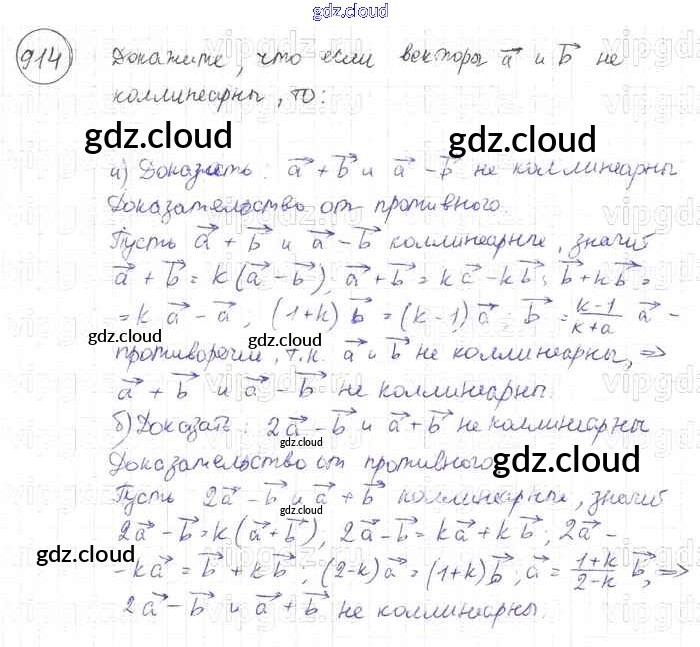 gdz.cloud
914 Докажите, что если векторы a⃗ и b⃗ не
коллинеарны, то:
gdz.cloud gdz.cloud
а) Доказать: a⃗ + b⃗ и a⃗ - b⃗ не коллинеарны
Доказательство от противного.
Пусть a⃗ + b⃗ и a⃗ - b⃗ коллинеарные, значит
a⃗ + b⃗ = k(a⃗ - b⃗); a⃗ + b⃗ = ka⃗ - kb⃗; b⃗ + kb⃗ =
= ka⃗ - a⃗; (1+k) b⃗ = (k-1) a⃗; b⃗ = (k-1)/(k+a) a⃗ -
gdz.cloud gdz.cloud
противоречие, т.к. a⃗ и b⃗ не коллинеарны, ⇒
a⃗ + b⃗ и a⃗ - b⃗ не коллинеарны.
б) Доказать: 2a⃗ - b⃗ и a⃗ + b⃗ не коллинеарны
gdz.cloud
Доказательство от противного
gdz.cloud
Пусть 2a⃗ - b⃗ и a⃗ + b⃗ коллинеарные, значит
gdz.cloud
2a⃗ - b⃗ = k(a⃗ + b⃗), 2a⃗ - b⃗ = ka⃗ + kb⃗; 2a⃗ -
gdz.cloud
- ka⃗ = b⃗ + kb⃗; (2-k)a⃗ = (1+k)b⃗; a⃗ = (1+k)/(2-k) b⃗, ⇒
2a⃗ - b⃗ и a⃗ + b⃗ не коллинеарны.
gdz.cloud